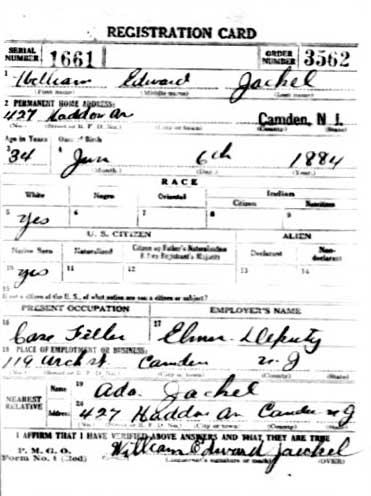 REGISTRATION CARD
SERIAL NUMBER 1661 ORDER NUMBER 3562
1 William Edward Jachel
(First name) (Middle name) (Last name)
2 PERMANENT HOME ADDRESS:
427 Haddon Av Camden, N J.
(No.) (Street or R. F. D. No.) (City or town) (County) (State)
Age in Years Date of Birth
3 34 4 Jan 6th 1884
(Month.) (Day.) (Year.)
RACE
White Negro Oriental Indian
Citizen Noncitizen
5 Yes 6 7 8 9
U. S. CITIZEN ALIEN
Native Born Naturalized Citizen by Father's Naturalization Before Registrant's Majority Declarant Non-declarant
10 Yes 11 12 13 14
15
If not a citizen of the U. S., of what nation are you a citizen or subject?
PRESENT OCCUPATION EMPLOYER'S NAME
16 Case Filler 17 Elmer Deputy
18 PLACE OF EMPLOYMENT OR BUSINESS:
119 Arch st Camden N J
(No.) (Street or R. F. D. No.) (City or town) (County) (State)
NEAREST RELATIVE Name 19 Ada Jachel
Address 20 427 Haddon Av Camden N J
(No.) (Street or R. F. D. No.) (City or town) (County) (State)
I AFFIRM THAT I HAVE VERIFIED ABOVE ANSWERS AND THAT THEY ARE TRUE
P. M. G. O.
Form No. 1 (Red) William Edward Jaechel
(Registrant's signature or mark) (OVER)